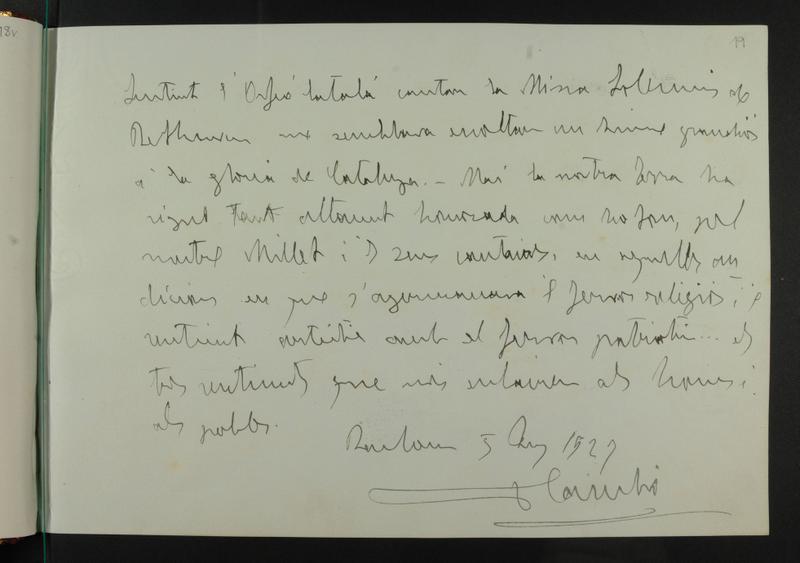 18v
19
Sentint l'Orfeó Català cantar la Missa Solemnis de
Bethoven me semblava escoltar un himne grandiós
a la gloria de Catalunya. - Mai la nostra terra ha
sigut tant altament honorada com ho fou, pel
mestre Millet i els seus cantaires, en aquelles au
dicions en que s'agermanava el fervor religiós, i el
sentiment artístic amb el fervor patriòtic... els
tres sentiments que més enlairen als homes i
als pobles.
Barcelona 5 1927
F Cambó